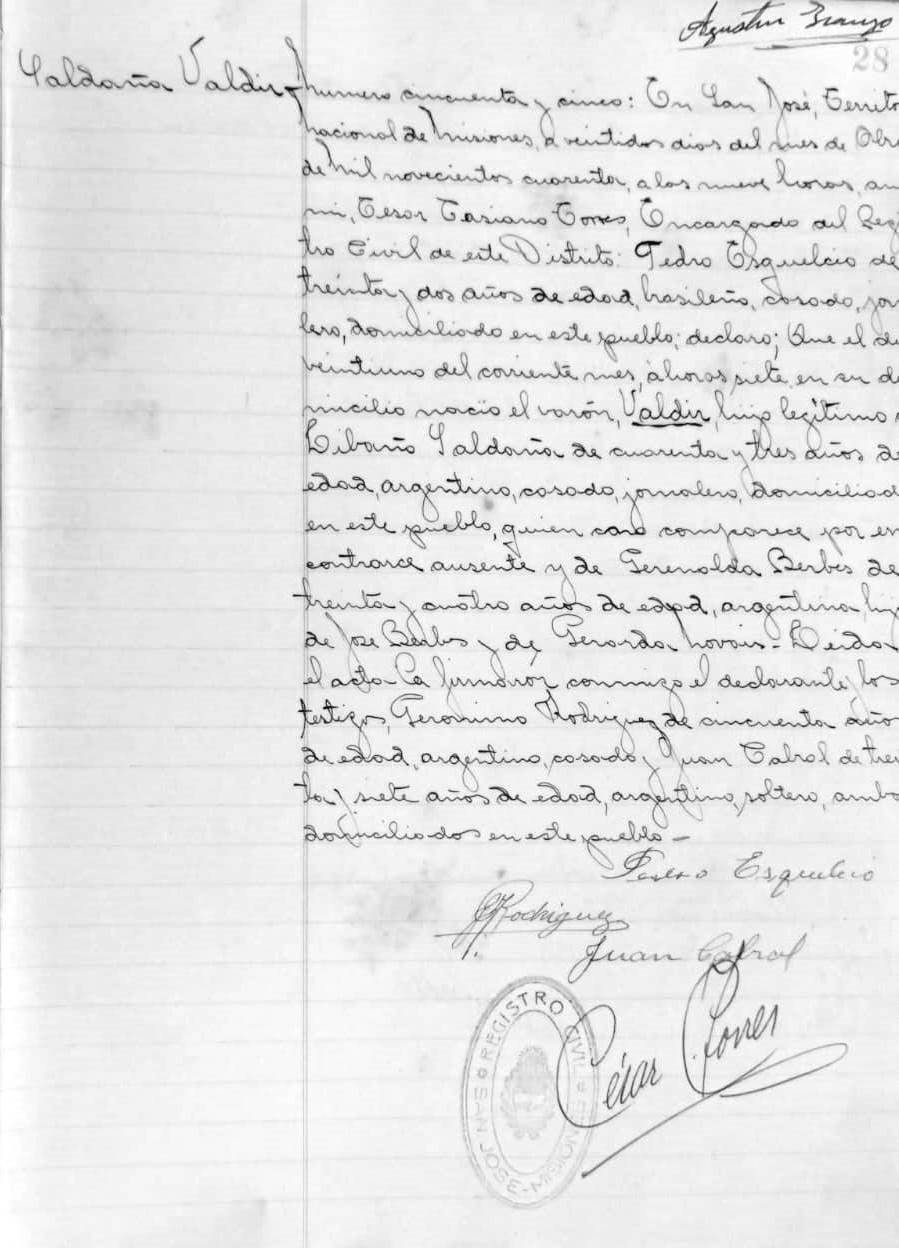 Agustin
28
Saldaña Valdir
numero cincuenta y cinco: En San José, Territo
nacional de Misiones, a veintidos dias del mes de
de Mil novecientos cuarenta, a las nueve horas, an
mi, Cesar Casiano Torres, Encargado del Regi
tro Civil de este Distrito: Pedro Esquelcio de
treinta y dos años de edad, brasileño, casado, jor
lero, domiciliado en este pueblo; declaro; Que el di
veintiuno del corriente mes, a horas siete, en su do
micilio nacio el varón, Valdir, hijo legítimo
Libaño Saldaña de cuarenta y tres años de
edad, argentino, casado, jornalero, domiciliad
en este pueblo, quien comparece por en
contrarce ausente y de Gerenalda Berbes de
treinta y cuatro años de edad, argentina, hij
de Jose Berbes y de Gerarda Novais - Leida
el acta la firmaron conmigo el declarante y los
testigos, Geronimo Rodriguez de cincuenta año
de edad, argentino, casado, y Juan Cabral de trei
ta y siete años de edad, argentino, soltero, ambo
domiciliados en este pueblo -
Pedro Esquelcio
GRodriguez
Juan Cabral
Cesar C. Torres
REGISTRO CIVIL
SAN JOSE - MISIONES